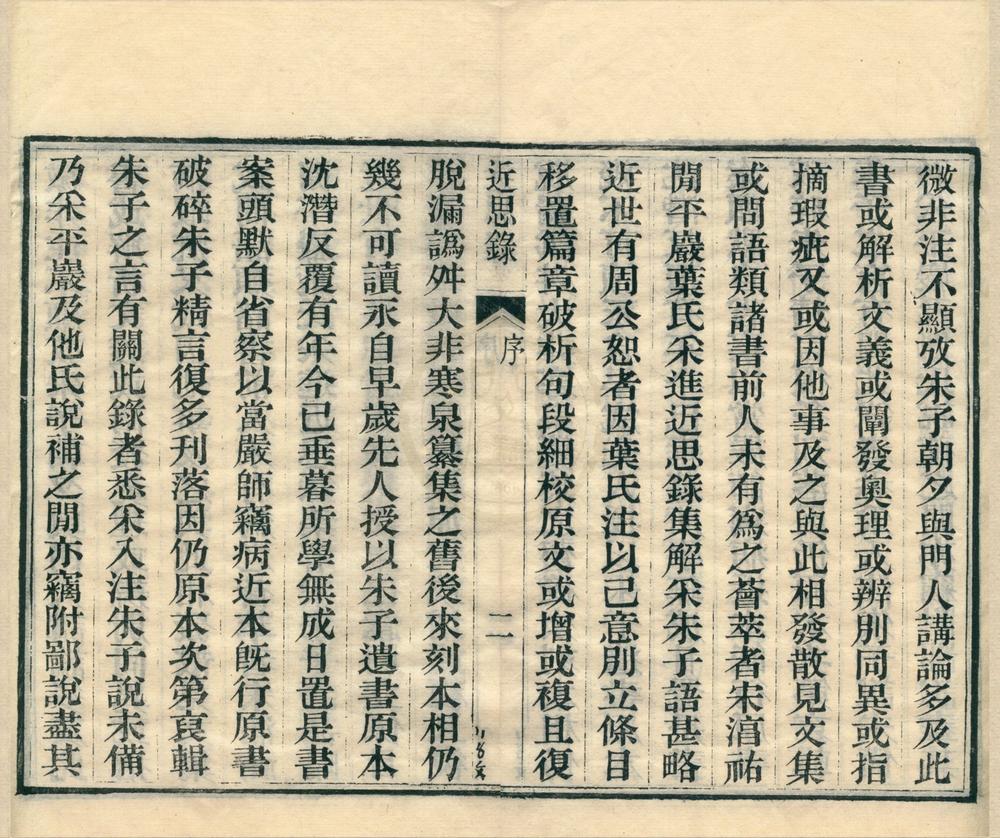 微非注不顯攷朱子朝夕與門人講論多及此
書或解析文義或闡發奧理或辨別同異或指
摘瑕疵又或因他事及之與此相發散見文集
或問語類諸書前人未有爲之薈萃者宋淳祐
閒平巖葉氏采進近思錄集解采朱子語甚略
近世有周公恕者因葉氏注以己意別立條目
移置篇章破析句段細校原文或增或複且復
近思錄 序 二
脫漏譌舛大非寒泉纂集之舊後來刻本相仍
幾不可讀永自早歲先人授以朱子遺書原本
沈潛反覆有年今已垂暮所學無成日置是書
案頭默自省察以當嚴師竊病近本旣行原書
破碎朱子精言復多刊落因仍原本次第裒輯
朱子之言有關此錄者悉采入注朱子說未備
乃采平巖及他氏說補之閒亦竊附鄙說盡其